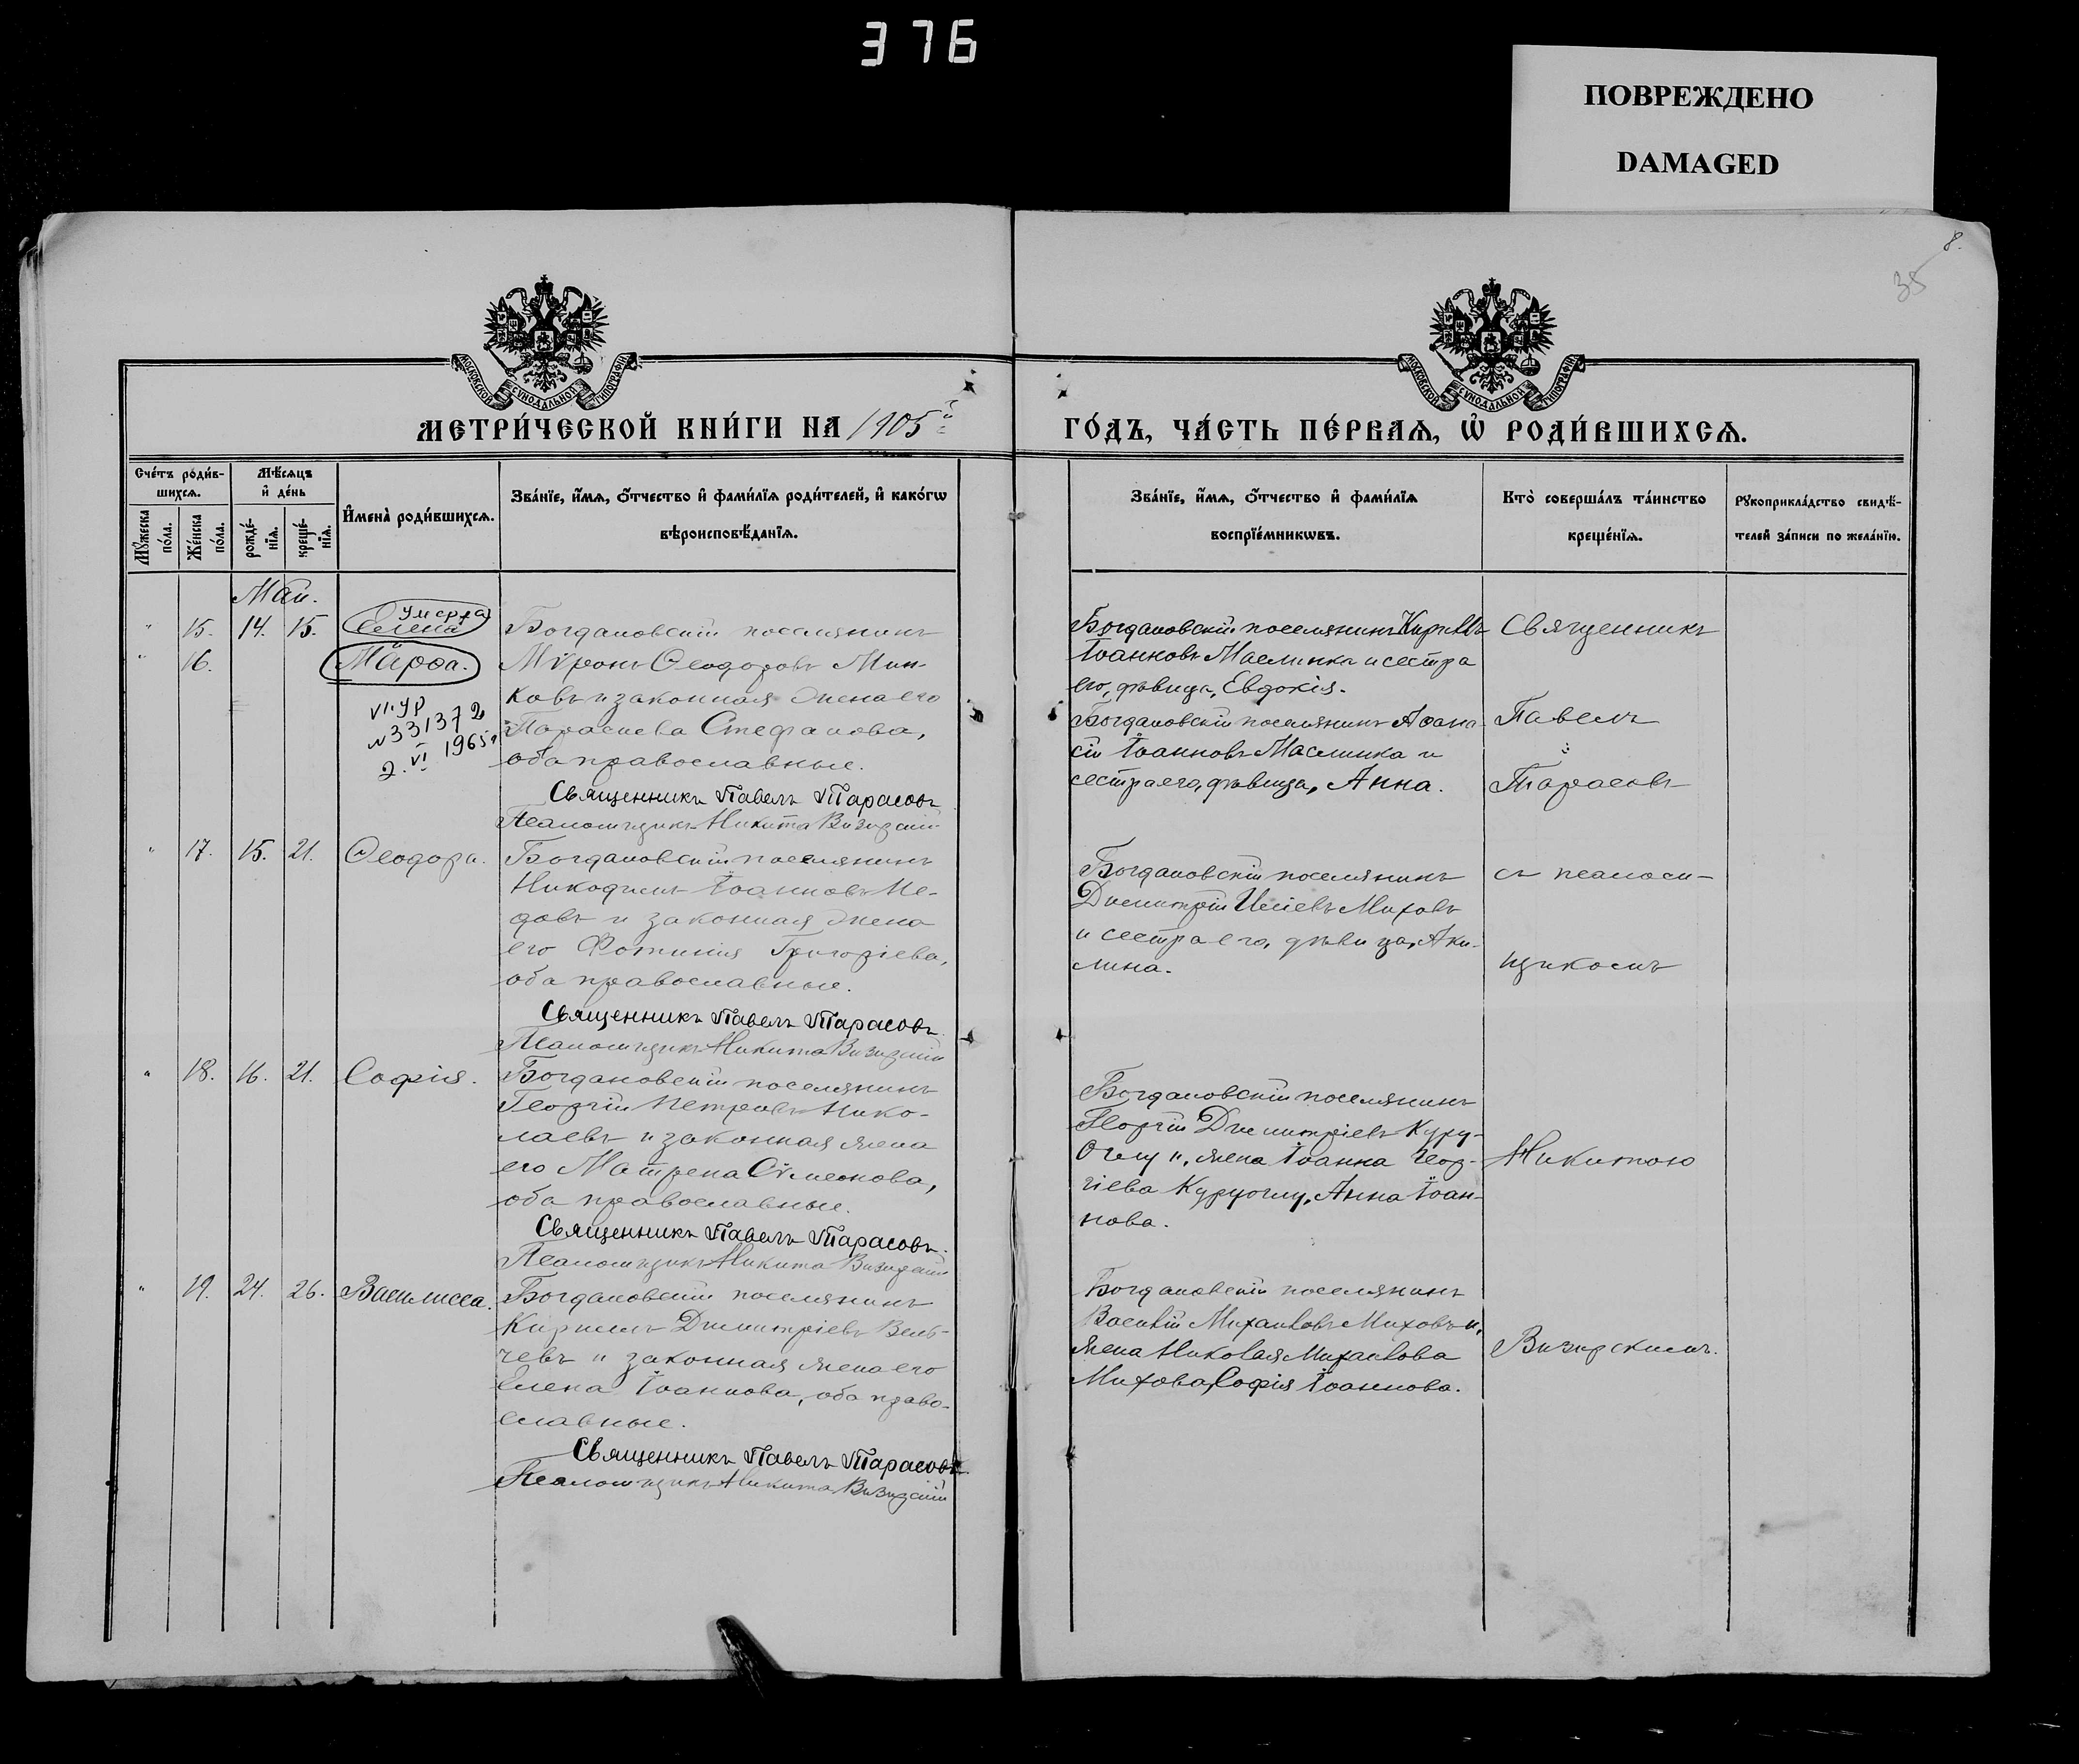 376
ПОВРЕЖДЕНО
DAMAGED
8.
35
МОСКОВСКОЙ СѴНОДАЛЬНОЙ ТИПОГРАФІИ
МОСКОВСКОЙ СѴНОДАЛЬНОЙ ТИПОГРАФІИ
МЕТРИ́ЧЕСКОЙ КНИ́ГИ НА 1905й
ГО́ДЪ, ЧА́СТЬ ПЕ́РВАЯ, Ѡ РОДИ́ВШИХСЯ.
Сче́тъ роди́в-
шихся.
Мѣ́сяцъ
и де́нь
Му́жеска по́ла.
Же́нска по́ла.
рожде́-нїя.
креще́-нїя.
И҆мена̀ роди́вшихся.
Зва́нїе, и҆́мя, о҆́тчество и҆ фами́лїя роди́телей, и҆ како́гѡ
вѣроисповѣ́данїя.
Зва́нїе, и҆́мя, о҆́тчество и҆ фами́лїя
воспрїе́мникѡвъ.
Кто̀ соверша́лъ та́инство
креще́нїя.
Рꙋкоприкла́дство свидѣ́-
телей за́писи по жела́нїю.
Май.
" 15. 14. 15. Елена умерла
" 16. Марѳа.
VI.УР
N 331372
2.VI 1965г
Богдановскій поселянинъ
Мѵронъ Ѳеодоровъ Мин-
ковъ и законная жена его
Параскева Стефанова,
оба православные.
Священникъ Павелъ Тарасовъ
Псаломщикъ Никита Визирскій
Богдановскій поселянинъ Кириллъ
Іоанновъ Маслинка и сестра
его, дѣвица, Евдокія.
Богдановскій поселянинъ Аѳана-
сій Іоанновъ Маслинка и
сестра его, дѣвица, Анна.
Священникъ
Павелъ
Тарасовъ
" 17. 15. 21. Ѳеодора.
Богдановскій поселянинъ
Никодимъ Іоанновъ Не-
довъ и законная жена
его Фотинія Григоріева,
оба православные.
Священникъ Павелъ Тарасовъ
Псаломщикъ Никита Визирскій
Богдановскій поселянинъ
Димитрій Иліевъ Миховъ
и сестра его, дѣвица, Аки-
лина.
съ псалом-
щикомъ
" 18. 16. 21. Софія.
Богдановскій поселянинъ
Георгій Петровъ Нико-
лаевъ и законная жена
его Матрена Сѵмеонова,
оба православные.
Священникъ Павелъ Тарасовъ.
Псаломщикъ Никита Визирскій
Богдановскій поселянинъ
Георгій Димитріевъ Куру-
Оглу и, жена Іоанна Геор-
гіева Куруоглу, Анна Іоан-
нова.
Никитою
" 19. 24. 26. Василисса.
Богдановскій поселянинъ
Кириллъ Димитріевъ Вель-
чевъ и законная жена его
Елена Іоаннова, оба право-
славные.
Священникъ Павелъ Тарасовъ
Псаломщикъ Никита Визирскій
Богдановскій поселянинъ
Василій Михаиловъ Миховъ и,
жена Николая Михаилова
Михова, Софія Іоаннова.
Визирскимъ.